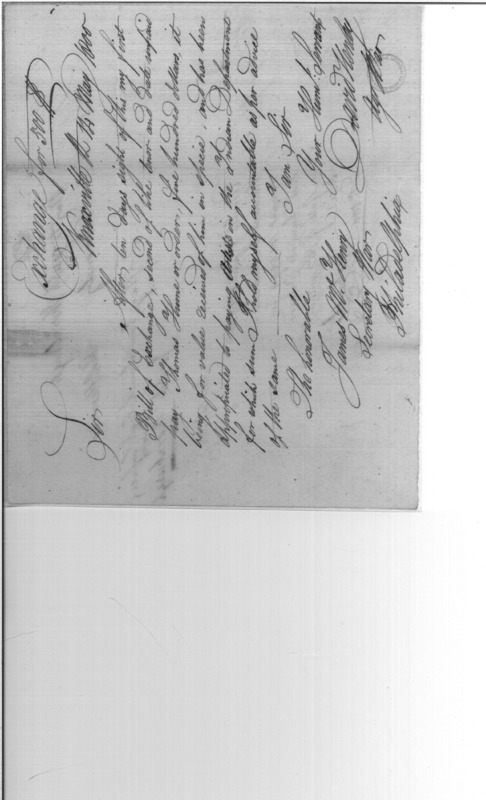 Exchange for 500 $
Knoxville 14 May 1800
Sir
After ten days sight of this my first
Bill of Exchange, second of like tenor and date unpaid
pay Thomas Hume or order, five hundred dollars, it
being for value received of him in specie, and has been
appropriated to paying in the Indian Department
for which sum I hold myself accountable as per advice
of the same I am Sir
Your Hum. Servant
David Henley
The honorable
James McHenry
Secretary War
Philadelphia